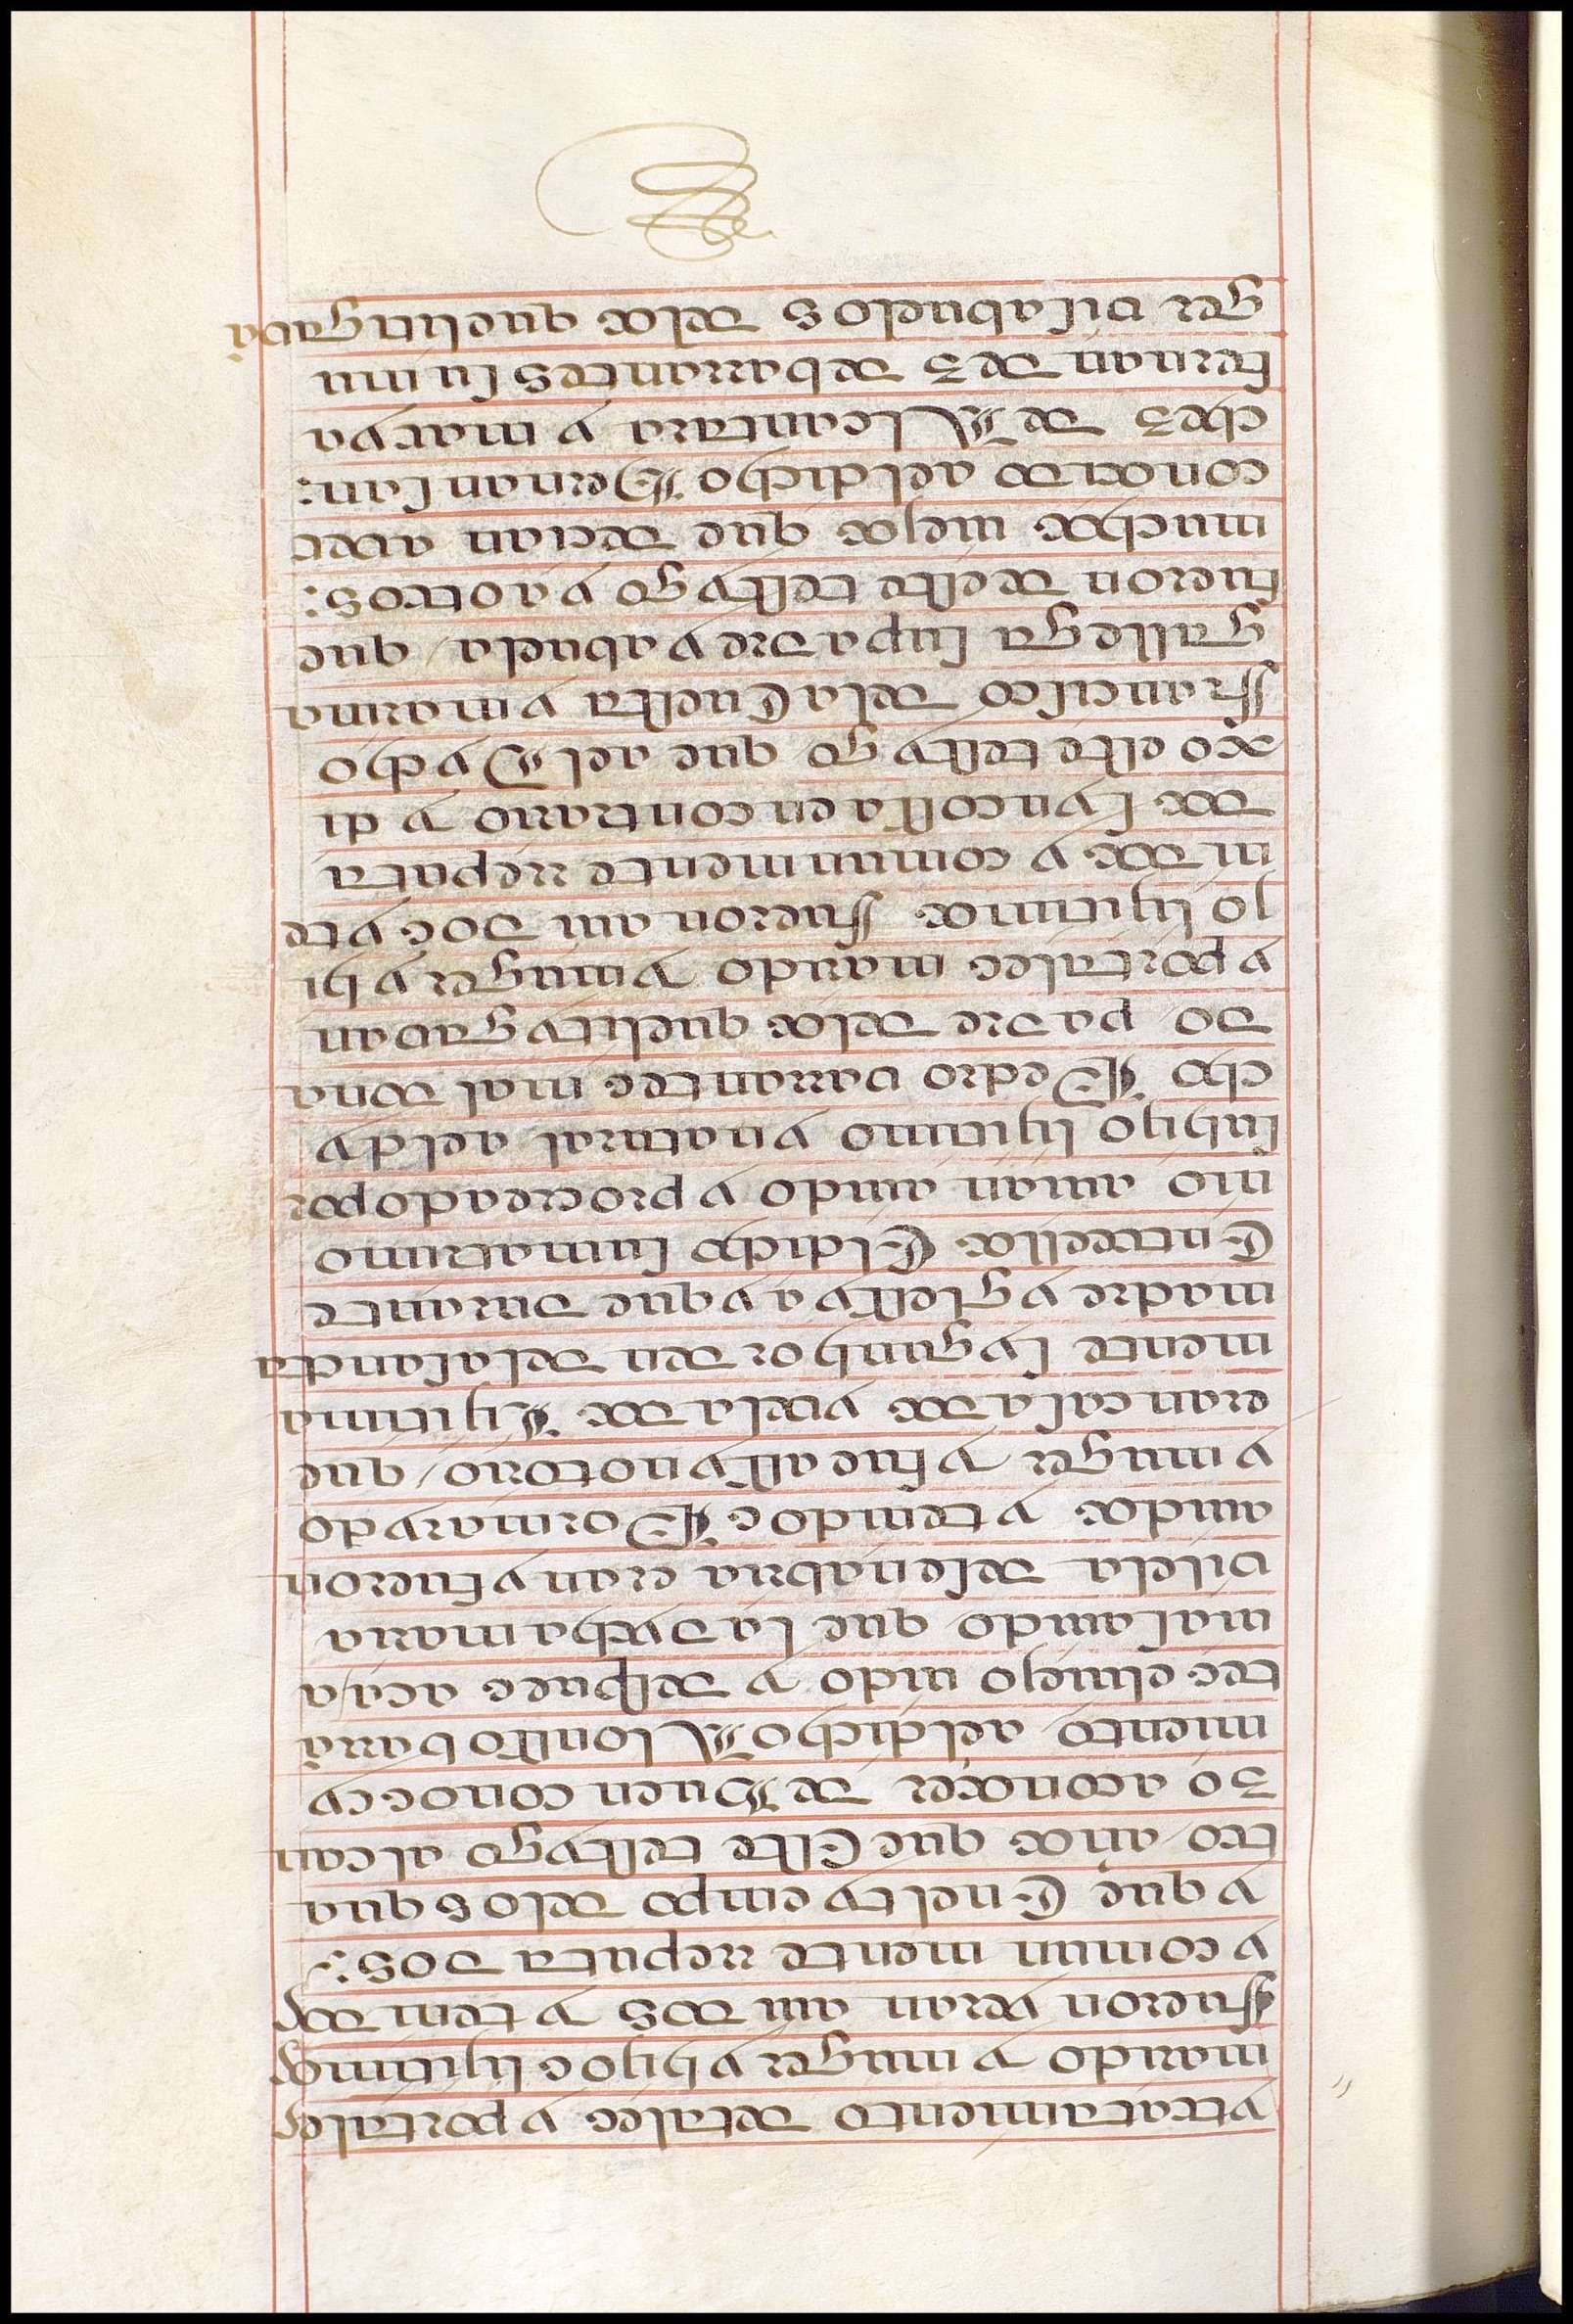 ytratamiento detales y portales
marido y muger y hijos lijitimos
fueron yeran auidos y tenidos
y comun mente rreputados:
y que Enel tiempo delos qua
tro años que Este testigo alcan
zo aconoxer de Buen conoscy
miento aeldicho Alonsso barra
uido y despues aca/a
uia auido que la dycha maria
eran y fueron
auidos y tenidos Por marido
y muger y fue assy notorio / que
eran casados y velados Lijitima
mente sygun horden dela santa
madre yglessia y que durante
Entrellos El dicho sumatrimo
nio auian auido y procreado por
suhijo lijitimo y natural aeldi
cho Pedro barrantes maldona
do padre delos quelitygauan
y portales marido y muger y hi
jo lijitimos fueron auidos y te
nidos y comunmente rreputa
dos syn cossa en contrario y di
xo este testygo que ael Dycho
ffrancisco dela Cuesta y maria
gallega supadre y abuela / que
fueron deeste testygo y aotros:
muchos viejos que decian auer
conocido aeldicho Hernan san:
chez de Alcantara y maria
fernandez debarrantes su mu
ger visabuelos delos quelitigaua